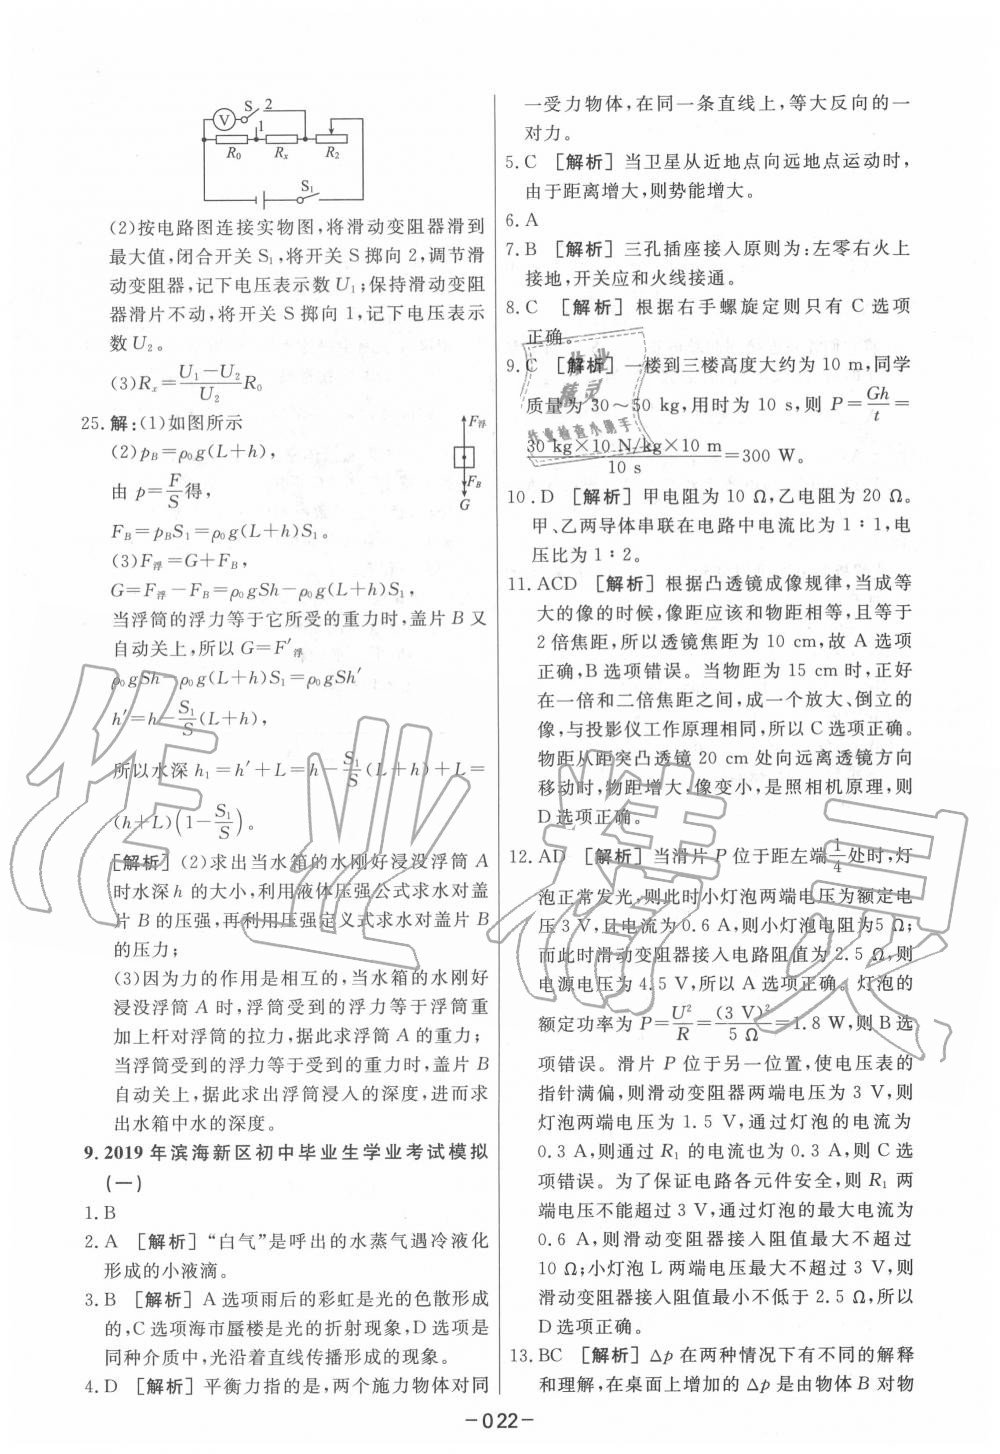 S 2
V
1
R₀ Rₓ R₂
S₁
(2)按电路图连接实物图,将滑动变阻器滑到
最大值,闭合开关 S₁,将开关 S 掷向 2,调节滑
动变阻器,记下电压表示数 U₁;保持滑动变阻
器滑片不动,将开关 S 掷向 1,记下电压表示
数 U₂。
(3)Rₓ=(U₁-U₂)/U₂ R₀
25. 解:(1)如图所示
F浮
F_B
G
(2)p_B=ρ₀g(L+h),
由 p=F/S得,
F_B=p_BS₁=ρ₀g(L+h)S₁。
(3)F浮=G+F_B,
G=F浮-F_B=ρ₀gSh-ρ₀g(L+h)S₁,
当浮筒的浮力等于它所受的重力时,盖片 B 又
自动关上,所以 G=F′浮
ρ₀gSh-ρ₀g(L+h)S₁=ρ₀gSh′
h′=h-S₁/S(L+h),
所以水深 h₁=h′+L=h-S₁/S(L+h)+L=
(h+L)(1-S₁/S)。
[解析] (2)求出当水箱的水刚好浸没浮筒 A
时水深 h 的大小,利用液体压强公式求水对盖
片 B 的压强,再利用压强定义式求水对盖片 B
的压力;
(3)因为力的作用是相互的,当水箱的水刚好
浸没浮筒 A 时,浮筒受到的浮力等于浮筒重
加上杆对浮筒的拉力,据此求浮筒 A 的重力;
当浮筒受到的浮力等于受到的重力时,盖片 B
自动关上,据此求出浮筒浸入的深度,进而求
出水箱中水的深度。
9. 2019 年滨海新区初中毕业生学业考试模拟
(一)
1. B
2. A [解析] “白气”是呼出的水蒸气遇冷液化
形成的小液滴。
3. B [解析] A 选项雨后的彩虹是光的色散形成
的,C 选项海市蜃楼是光的折射现象,D 选项是
同种介质中,光沿着直线传播形成的现象。
4. D [解析] 平衡力指的是,两个施力物体对同
一受力物体,在同一条直线上,等大反向的一
对力。
5. C [解析] 当卫星从近地点向远地点运动时,
由于距离增大,则势能增大。
6. A
7. B [解析] 三孔插座接入原则为:左零右火上
接地,开关应和火线接通。
8. C [解析] 根据右手螺旋定则只有 C 选项
正确。
9. C [解析] 一楼到三楼高度大约为 10 m,同学
质量为 30～50 kg,用时为 10 s,则 P=Gh/t=
(30 kg×10 N/kg×10 m)/(10 s)=300 W。
10. D [解析] 甲电阻为 10 Ω,乙电阻为 20 Ω。
甲、乙两导体串联在电路中电流比为 1∶1,电
压比为 1∶2。
11. ACD [解析] 根据凸透镜成像规律,当成等
大的像的时候,像距应该和物距相等,且等于
2 倍焦距,所以透镜焦距为 10 cm,故 A 选项
正确,B 选项错误。当物距为 15 cm 时,正好
在一倍和二倍焦距之间,成一个放大、倒立的
像,与投影仪工作原理相同,所以 C 选项正确。
物距从距突凸透镜 20 cm 处向远离透镜方向
移动时,物距增大,像变小,是照相机原理,则
D 选项正确。
12. AD [解析] 当滑片 P 位于距左端1/4处时,灯
泡正常发光,则此时小灯泡两端电压为额定电
压 3 V,且电流为 0.6 A,则小灯泡电阻为5 Ω;
而此时滑动变阻器接入电路阻值为 2.5 Ω,则
电源电压为 4.5 V,所以 A 选项正确。灯泡的
额定功率为 P=U²/R=(3 V)²/5 Ω=1.8 W,则 B 选
项错误。滑片 P 位于另一位置,使电压表的
指针满偏,则滑动变阻器两端电压为 3 V,则
灯泡两端电压为 1.5 V,则此时通过灯泡的电
流为 0.3 A,则通过 R₁ 的电流也为 0.3 A,则 C 选
项错误。为了保证电路各元件安全,则 R₁ 两
端电压不能超过 3 V,则电路的最大电流为
0.6 A,则滑动变阻器接入阻值最大不超过
10 Ω;小灯泡 L 两端电压最大不超过 3 V,则
滑动变阻器接入阻值最小不低于 2.5 Ω,所以
D 选项正确。
13. BC [解析] Δp 在两种情况下有不同的解释
和理解,在桌面上增加的 Δp 是由物体 B 对物
-022-
作业精灵
作业
精灵
作业检查小助手